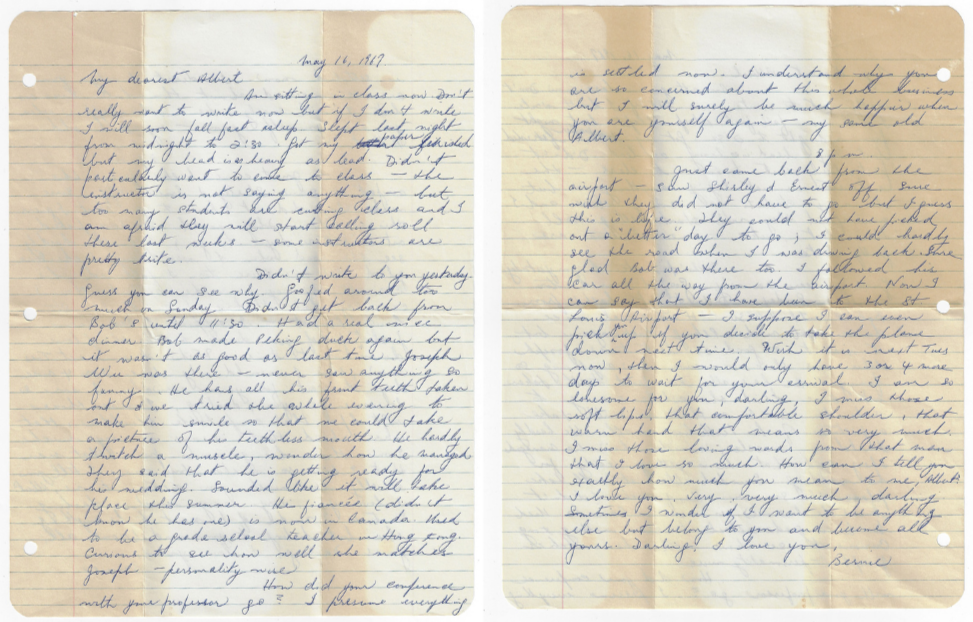 May 16, 1967
My dearest Albert
Am sitting in class now Don't
really want to write now but if I don't write
I will soon fall fast asleep. Slept last night
from midnight to 2:30. Got my paper finished
but my head is as heavy as lead. Didn't
particularly want to come to class — the
instructor is not saying anything — but
too many students are cutting class and I
am afraid they will start calling roll
these last weeks — some instructors are
pretty
Didn't write to you yesterday.
Guess you can see why. Goofed around too
much on Sunday Didn't get back from
Bob's until 11:30. Had a real nice
dinner Bob made Peking duck again but
it wasn't as good as last time. Joseph
was there — never saw anything so
funny. He has all his front teeth taken
out & we tried the whole evening to
make him smile so that we could take
a picture of his toothless mouth He hardly
a muscle, wonder how he managed
They said that he is getting ready for
his wedding. Sounded like it will take
place this summer. His fiancée (didn't
know he has one) is now in Canada. Used
to be a grade school teacher in Hong Kong.
Curious to see how well she matches
Joseph — personality wise
How did your conference
with your professor go? I presume everything
is settled now. I understand why you
are so concerned about this whole business
but I will surely be much happier when
you are yourself again — my same old
Albert.
8 p.m.
Just came back from the
airport — saw Shirley & Ernest off Sure
wish they did not have to go but I guess
this is life. They could not have picked
out a "better" day to go, I could hardly
see the road when I was driving back. Sure
glad Bob was there too. I followed his
car all the way from the airport. Now I
can say that I have been to the St
Louis Airport — I suppose I can even
pick you up if you decide to take the plane
down next time. Wish it is next Tues
now, then I would only have 3 or 4 more
days to wait for your arrival. I am so
lonesome for you darling, I miss those
soft lips, that comfortable shoulder, that
warm hand that means so very much.
I miss those loving words from that man
that I love so much. How can I tell you
exactly how much you mean to me, Albert.
I love you, very, very much, darling
Sometimes I wonder if I want to be anything
else but belong to you and become all
yours. Darling, I love you,
Bernie